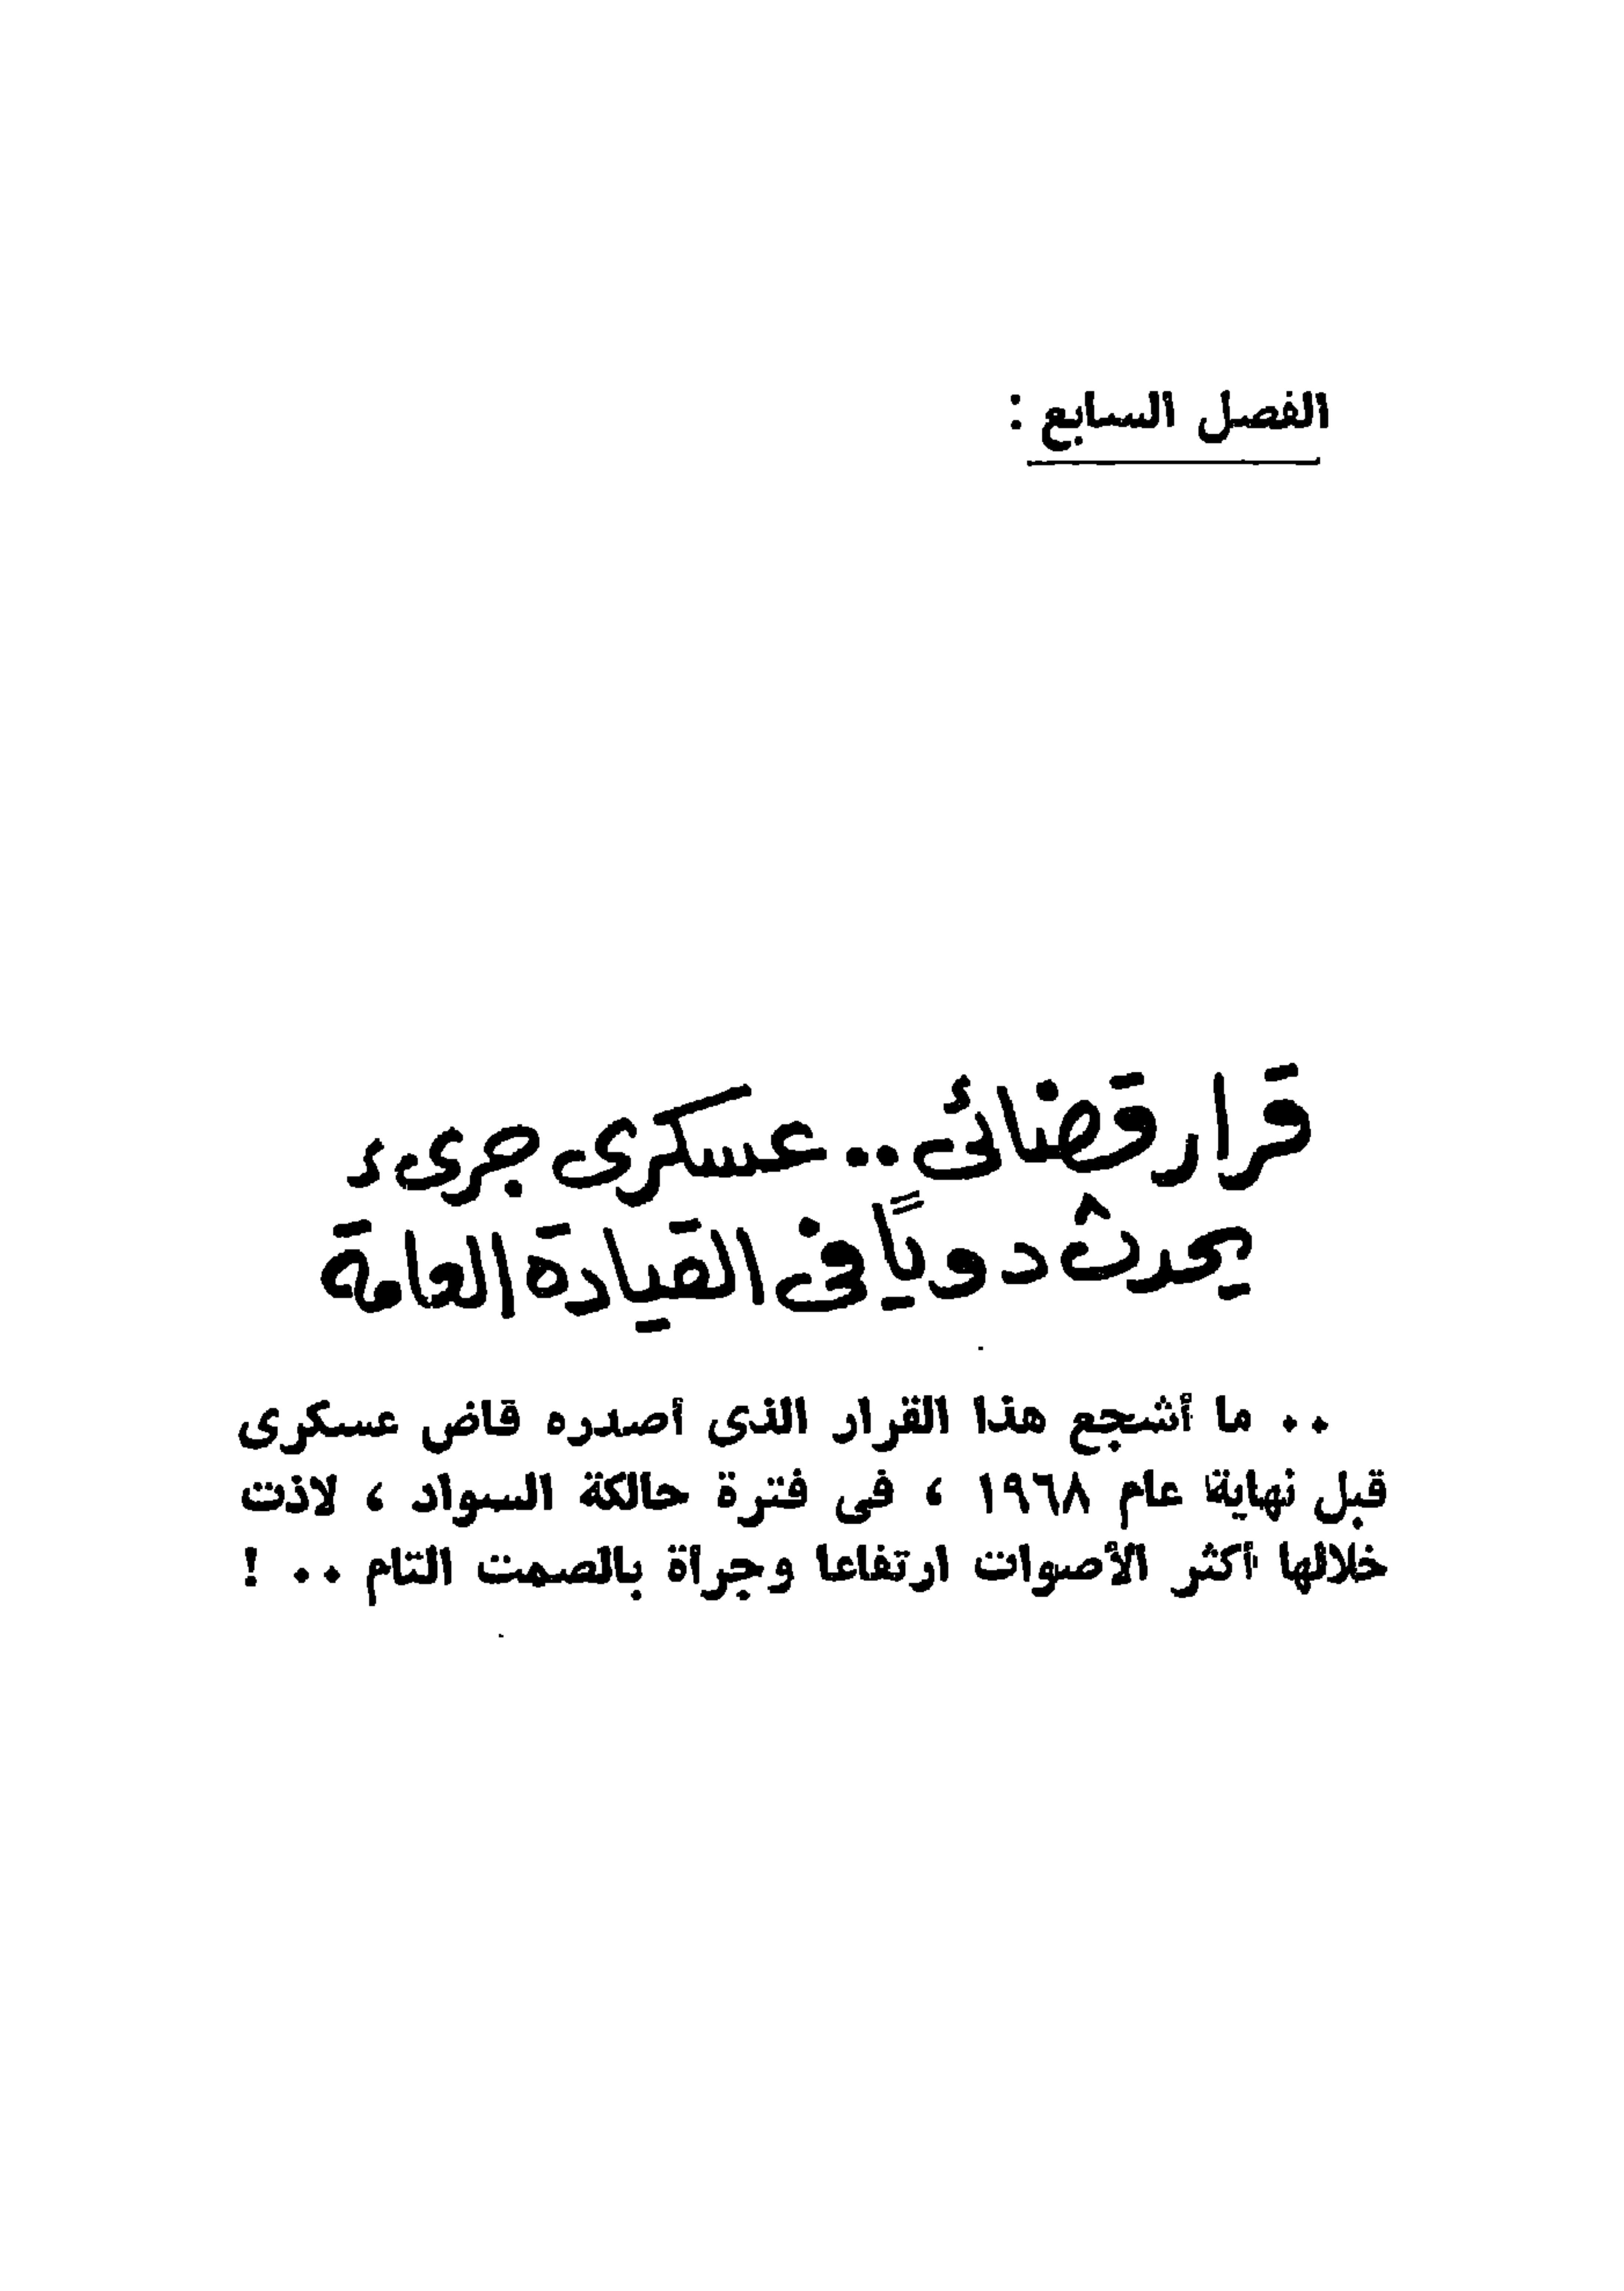 الفصل السابع :
قرار قضائى .. عسكرى جرىء
يحدث دوياً فى القيادة العامة
.. ما أشجع هذا القرار الذى أصدره قاض عسكرى
قبل نهاية عام ١٩٦٨ ، فى فترة حالكة السواد ، لاذت
خلالها أكثر الأصوات ارتفاعا وجرأة بالصمت التام .. !